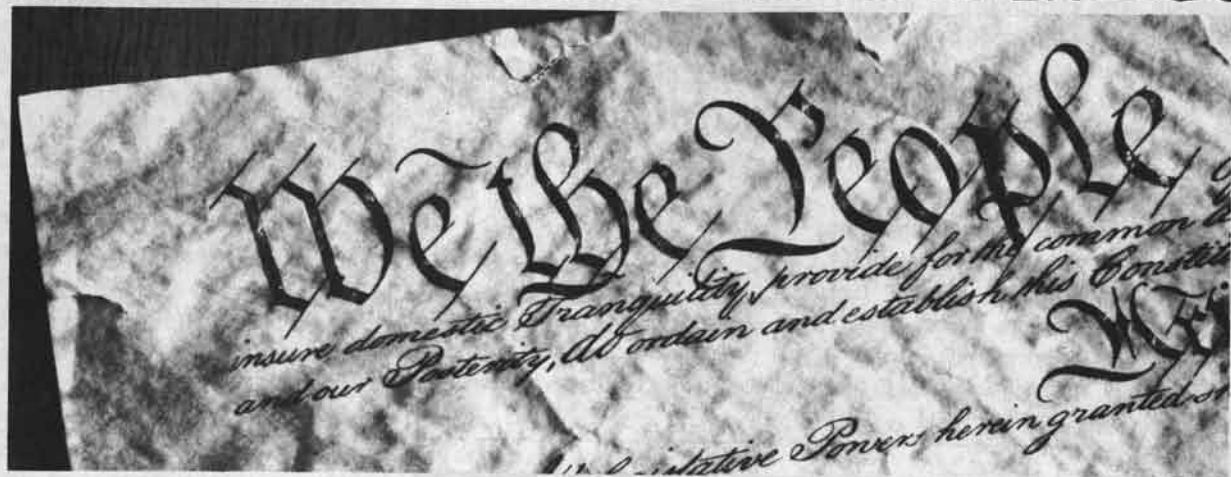 We the People
insure domestic Tranquility, provide for the common
and our Posterity, do ordain and establish this Constit
Powers herein granted